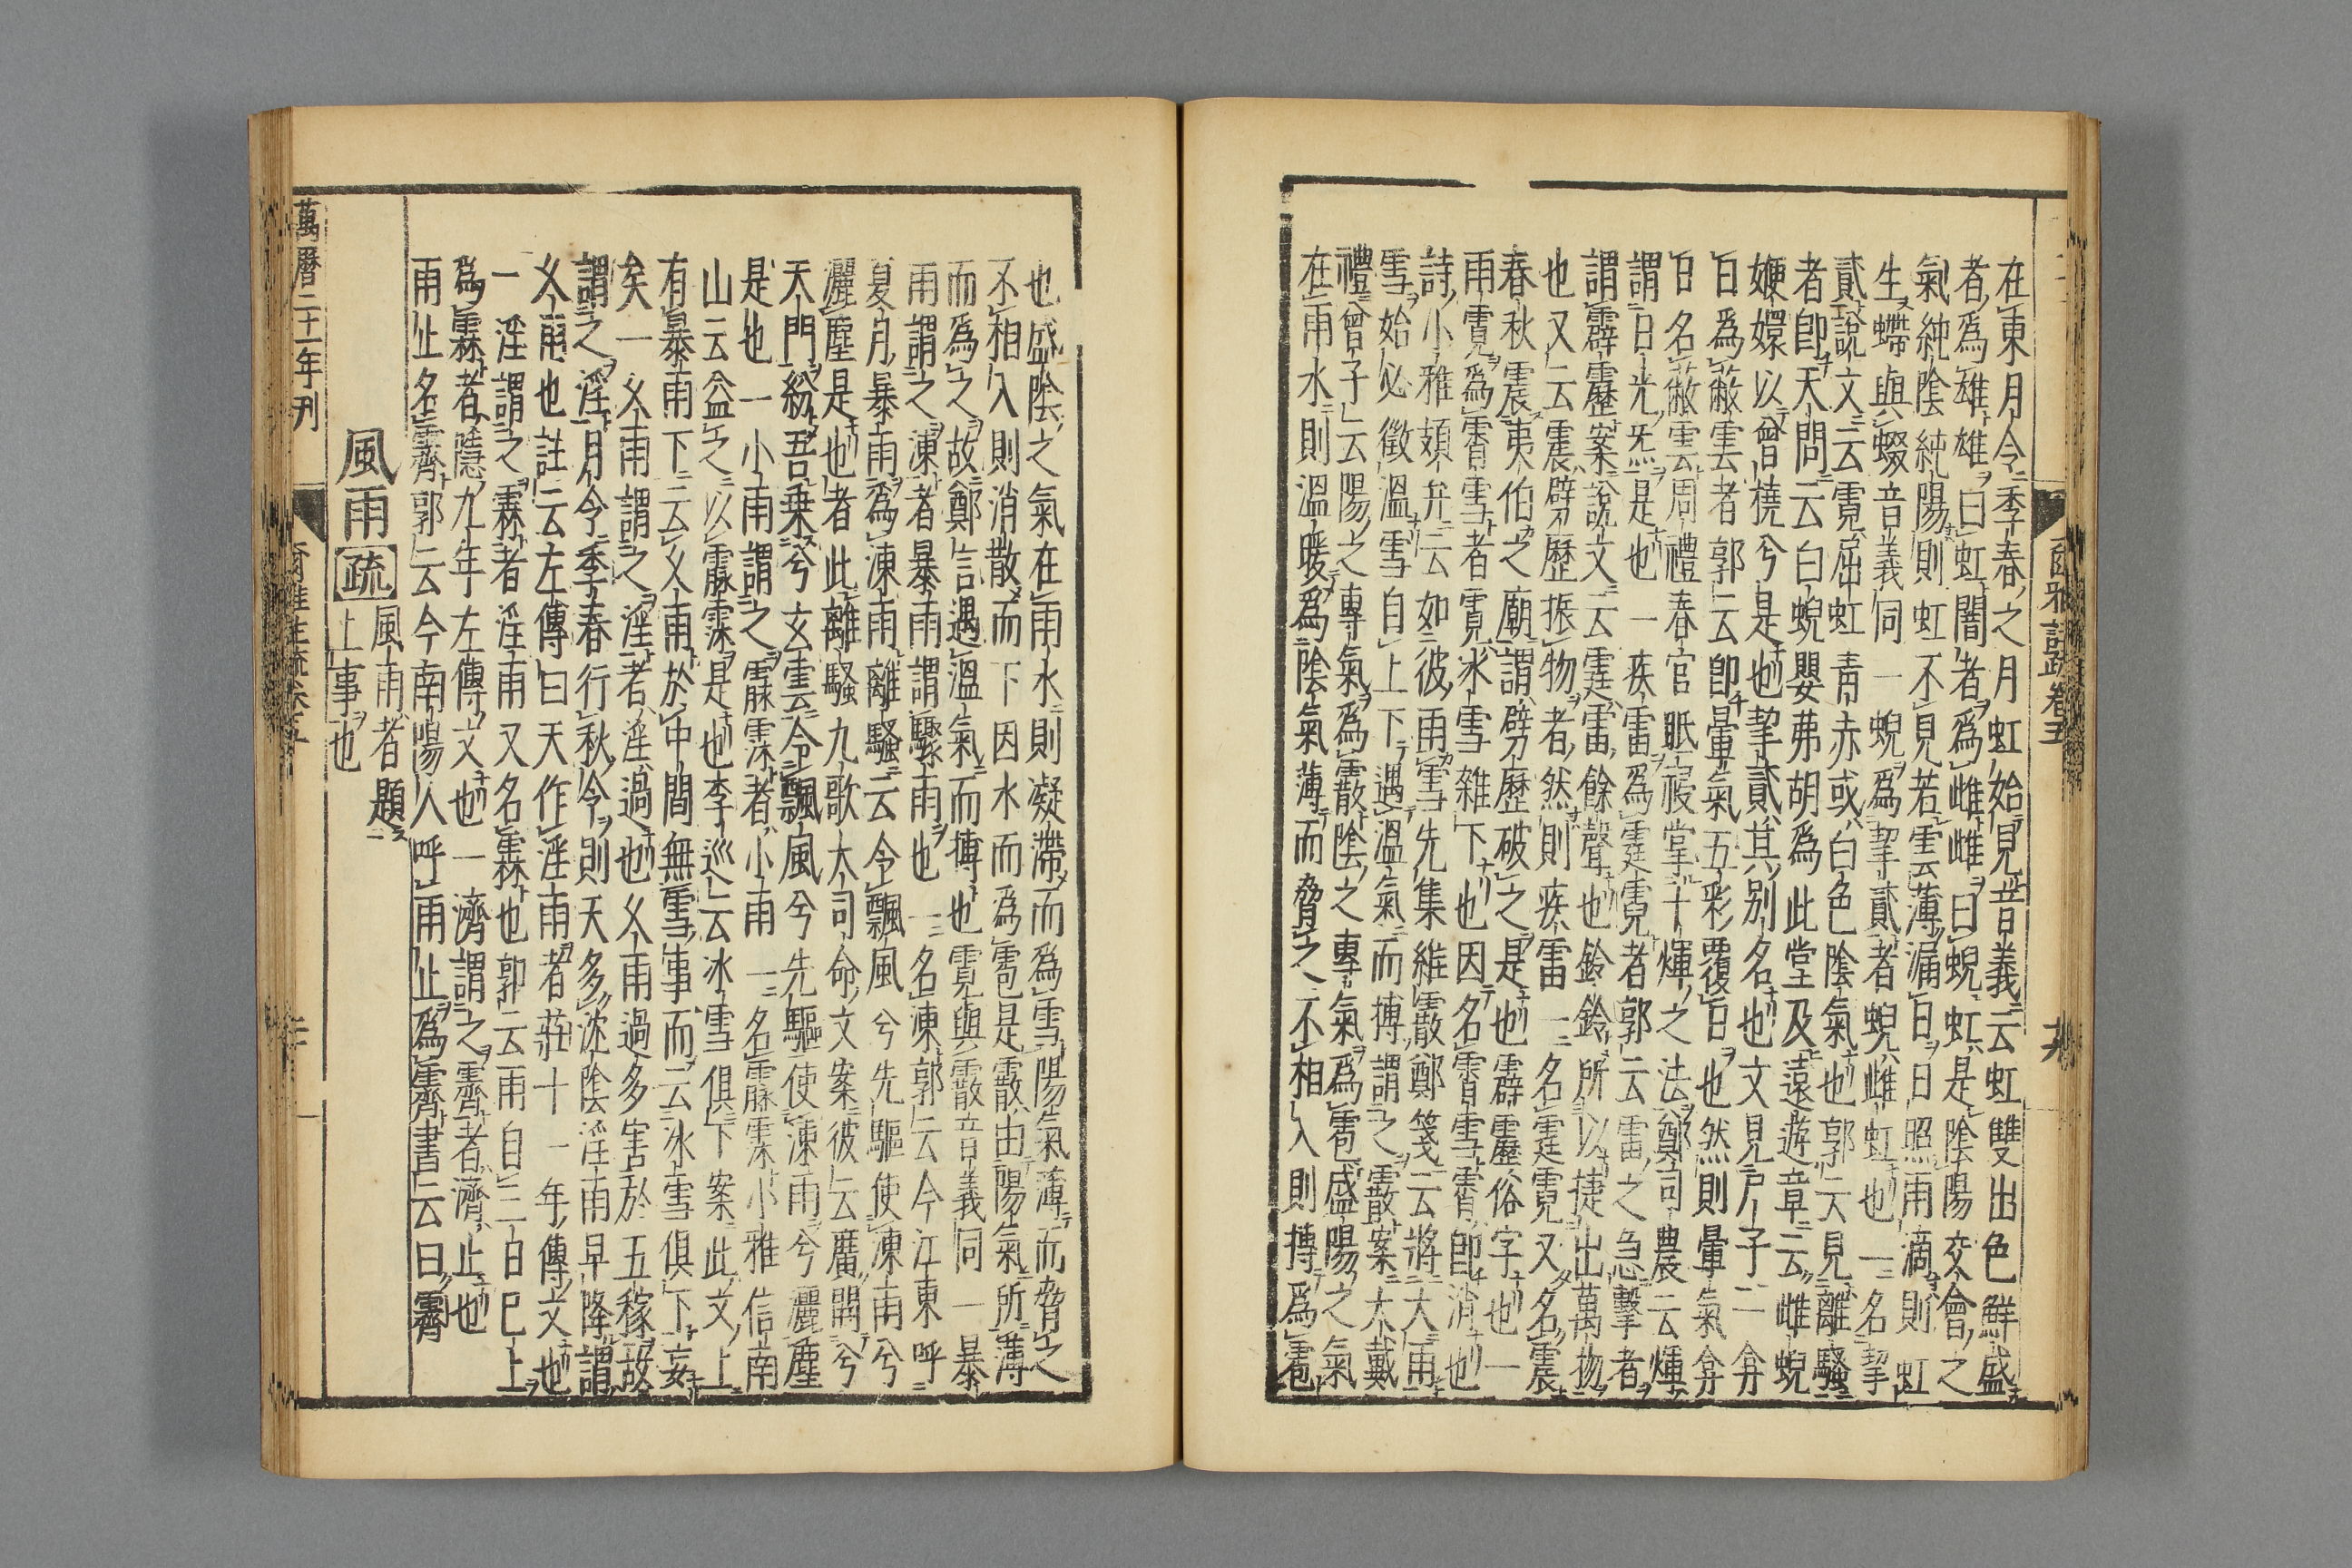 在東月令季春之月虹始見音義云虹雙出色鮮盛
者爲雄雄曰虹闇者爲雌雌曰蜺虹是陰陽交會之
氣純陰純陽則虹不見若雲薄漏日日照雨滴則虹
生螮與蝃音義同一蜺爲挈貳者蜺雌虹也一名挈
貳說文云霓屈虹青赤或白色陰氣也郭云見離騷
者卽天問云白蜺嬰茀胡爲此堂及遠遊章云雌蜺
㛹嬛以曾橈兮是也挈貳其別名也文見尸子二弇
日爲蔽雲者郭云卽暈氣五彩覆日也然則暈氣弇
日名蔽雲周禮春官眡祲掌十煇之法鄭司農云煇
謂日光炁是也一疾雷爲霆霓者郭云雷之急擊者
謂霹靂案說文云霆雷餘聲也鈴鈴所以挺出萬物
也又云震劈歷振物者然則疾雷一名霆霓又名震
春秋震夷伯之廟謂劈歷破之是也霹靂俗字也一
雨霓爲霄雪者霓冰雪雜下也因名霄雪霄卽消也
詩小雅頍弁云如彼雨雪先集維霰鄭箋云將大雨
雪始必微溫雪自上下遇溫氣而摶謂之霰案大戴
禮曾子云陽之專氣爲霰陰之專氣爲雹盛陽之氣
在雨水則溫暖爲陰氣薄而脅之不相入則摶爲雹
爾雅註疏卷五
也盛陰之氣在雨水則凝滯而爲雪陽氣薄而脅之
不相入則消散而下因水而爲雹是霰由陽氣所薄
而爲之故鄭言遇溫氣而摶也霓與霰音義同一暴
雨謂之涷者暴雨謂驟雨也一名涷郭云今江東呼
夏月暴雨爲涷雨離騷云令飄風兮先驅使涷雨兮
灑塵是也者此離騷九歌大司命文案彼云廣開兮
天門紛吾乗兮玄雲令飄風兮先驅使涷雨兮灑塵
是也一小雨謂之霢霂者小雨一名霢霂小雅信南
山云益之以霢霂是也李巡云冰雪俱下案此文上
有暴雨下云久雨於中間無雪事而云冰雪俱下妄
矣一久雨謂之淫者淫過也久雨過多害於五稼故
謂之淫月令季春行秋令則天多沈陰淫雨早降謂
久雨也註云左傳曰天作淫雨者莊十一年傳文也
一淫謂之霖者淫雨又名霖也郭云雨自三日巳上
爲霖者隱九年左傳文也一濟謂之霽者濟止也
雨止名霽郭云今南陽人呼雨止爲霽書云曰霽
風雨疏風雨者題
上事也
萬曆二十一年刊